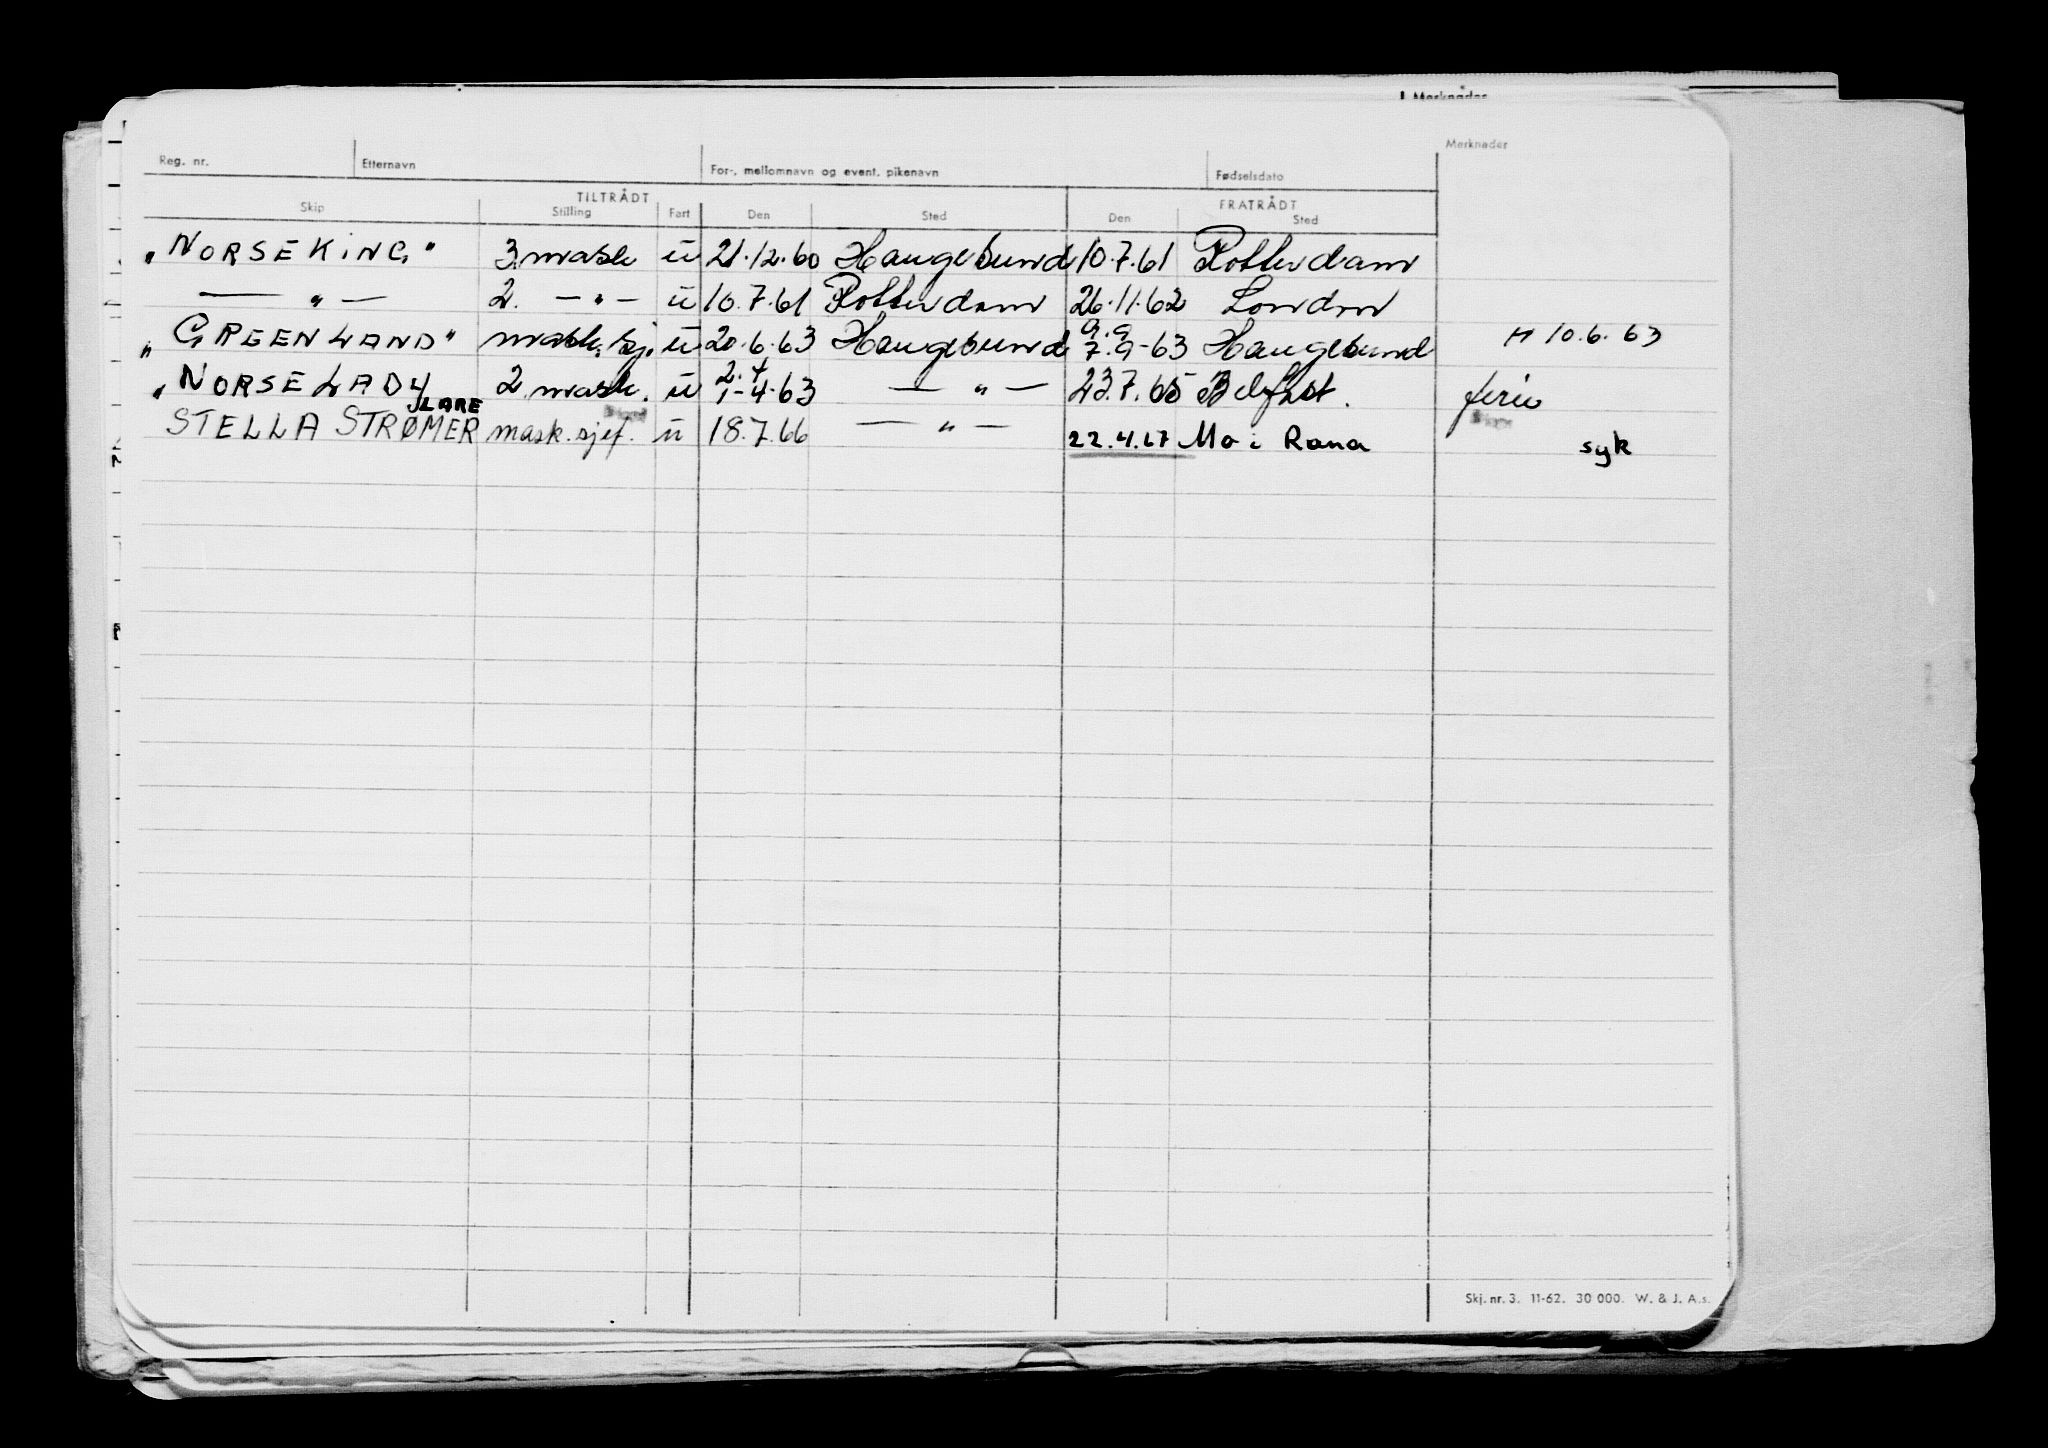 Merknader
Reg. nr. Etternavn For-, mellomnavn og event. pikenavn Fødselsdato Merknader
TILTRÅDT FRATRÅDT
Skip Stilling Fart Den Sted Den Sted
"NORSE KING" 3. mask ū 21.12.60 Haugesund 10.7.61 Rotterdam
— " — 2. — " — ū 10.7.61 Rotterdam 26.11.62 London
"GREENLAND" mask. sj. ū 20.6.63 Haugesund 9.9 7.9-63 Haugesund H 10.6.63
"NORSE LADY 2 mask. ū 2.4 1-4.63 — " — 23.7.65 Belfast. ferie
STELLA STRØMER mask.sjef. ū 18.7.66 — " — 22.4.67 Mo i Rana syk
Skj. nr. 3. 11-62. 30 000. W. & J. A.s.